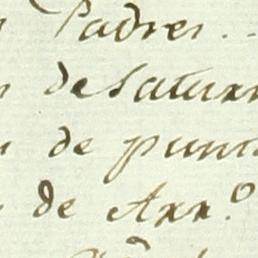 Padres..
de Saturn
de punt
de Arr.º